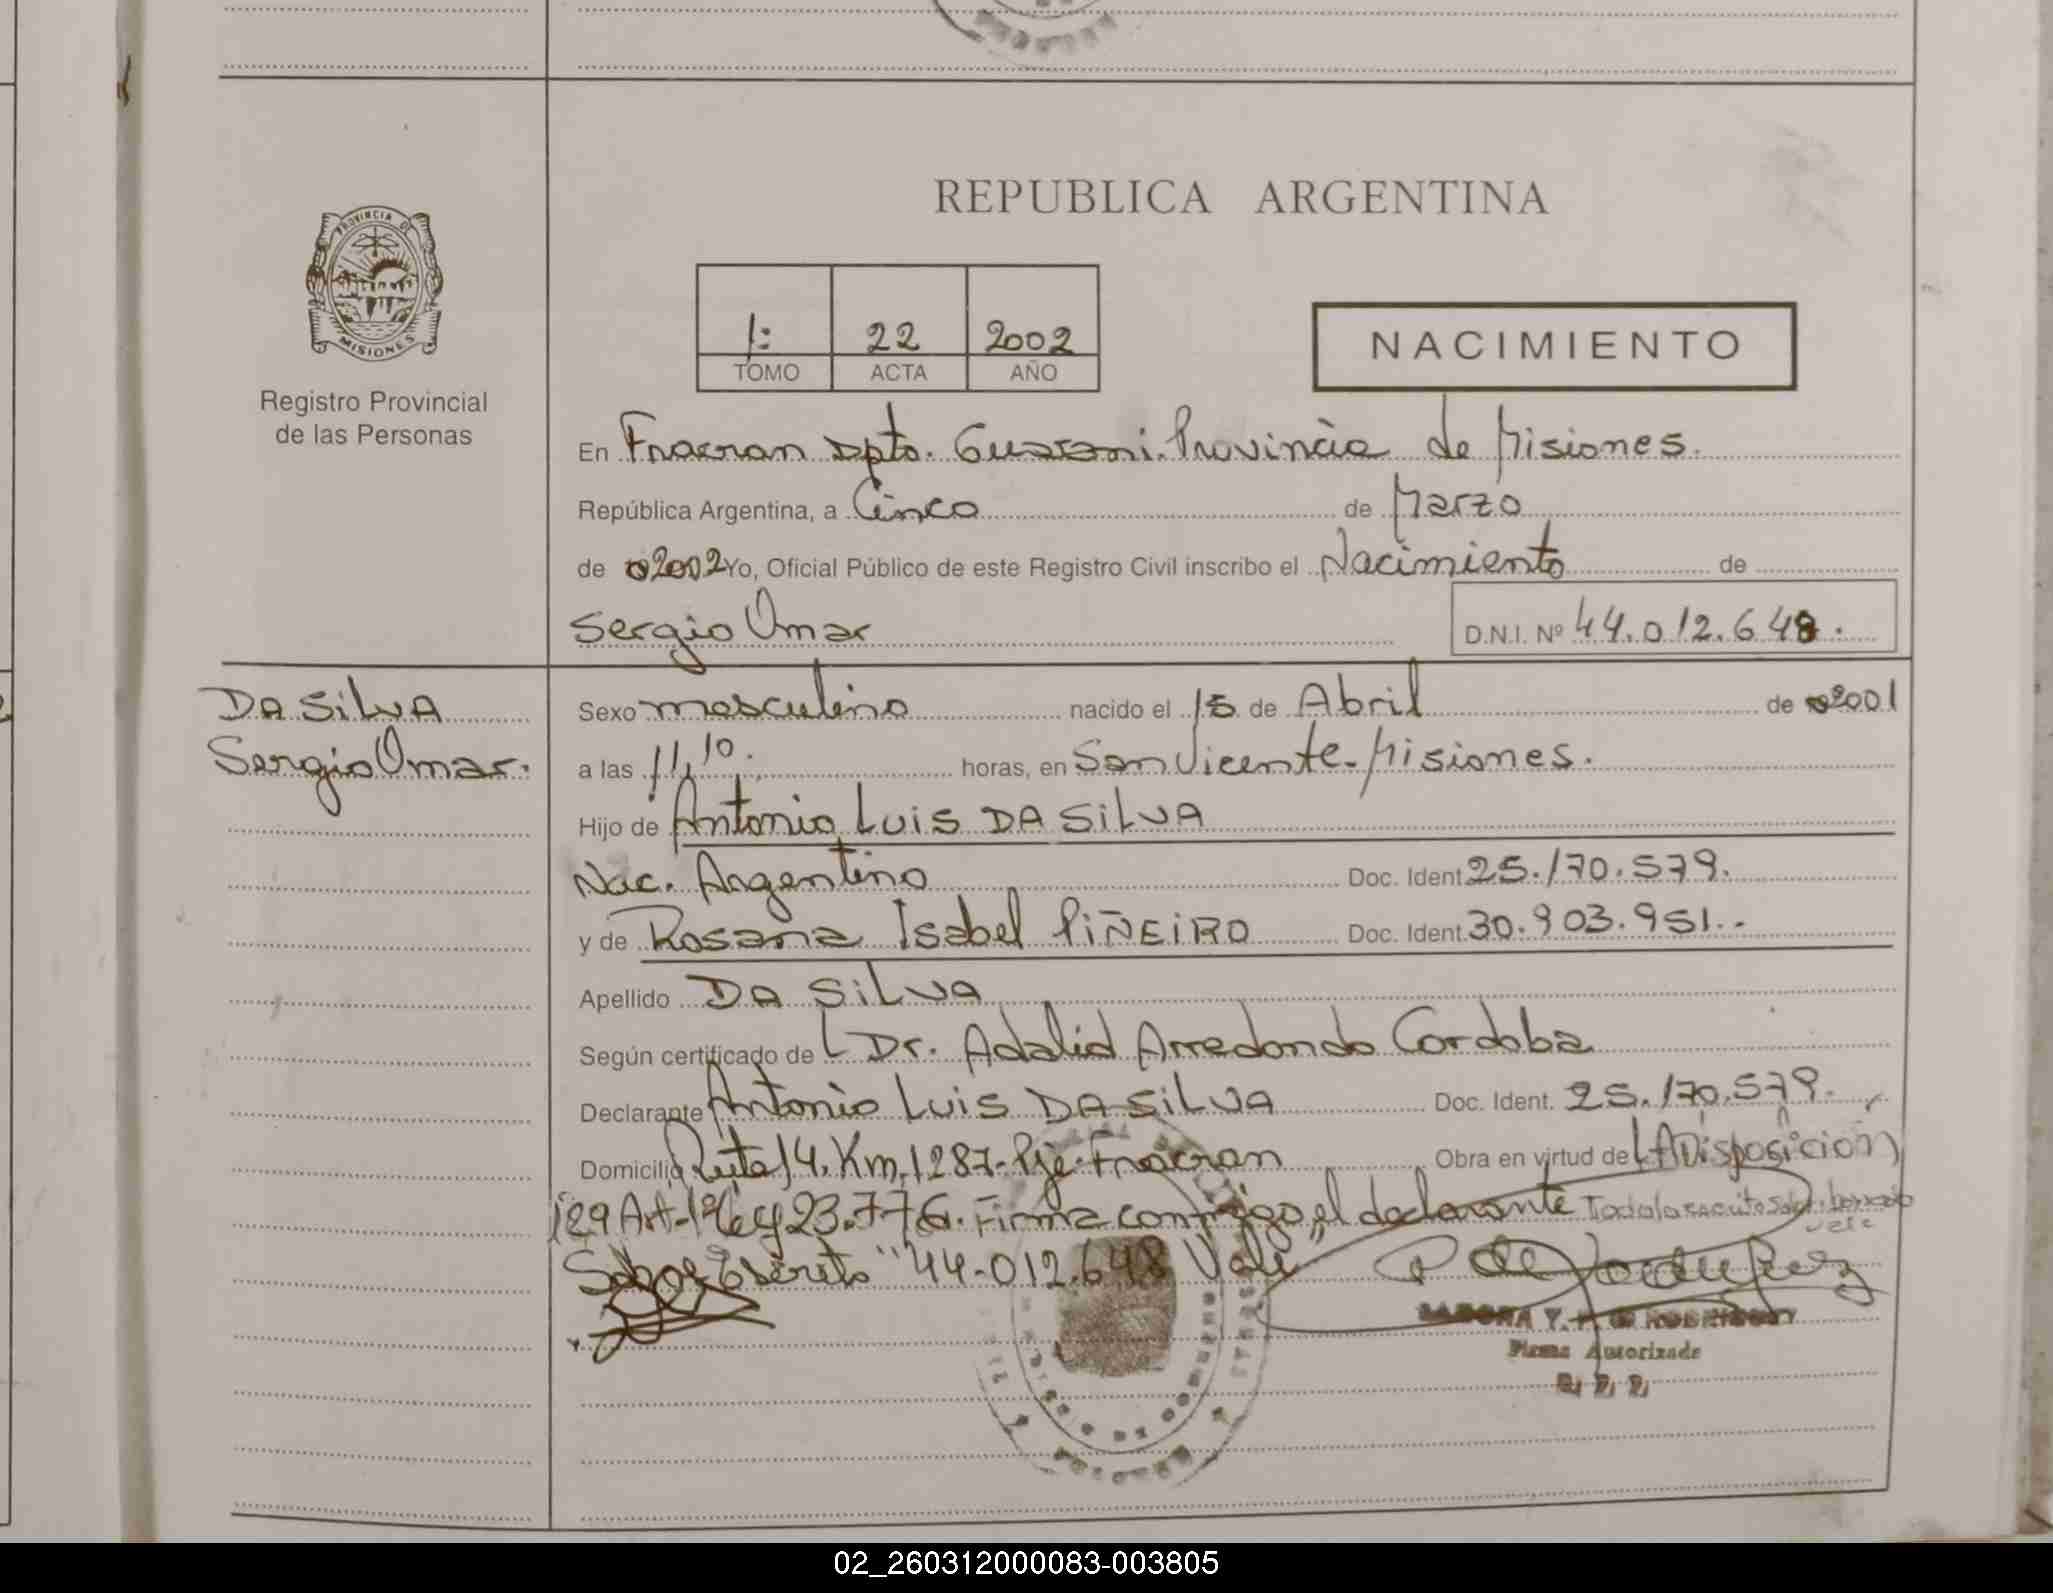 PROVINCIA DE
MISIONES
Registro Provincial
de las Personas
REPUBLICA ARGENTINA
1: 22 2002
TOMO ACTA AÑO
NACIMIENTO
En Fracran Dpto. Guarani. Provincia de Misiones.
República Argentina, a Cinco de Marzo
de 2002 Yo, Oficial Público de este Registro Civil inscribo el Nacimiento de
Sergio Omar D.N.I. Nº 44.012.648.
DA SILVA
Sergio Omar.
Sexo masculino nacido el 15 de Abril de 2001
a las 11,10. horas, en San Vicente-Misiones.
Hijo de Antonio Luis DA SILVA
Nac. Argentino Doc. Ident. 25.170.579.
y de Rosana Isabel PIÑEIRO Doc. Ident. 30.903.951.-
Apellido DA SILVA
Según certificado de Dr. Adalid Arredondo Cordoba
Declarante Antonio Luis DA SILVA Doc. Ident. 25.170.579.
Domicilio Ruta 14. Km. 1287-Pje. Fracran Obra en virtud de Disposicion
Art-1º Ley 23.776. Firma conmigo el declarante Todo lo escrito sobre borrado
vale
Sobre Escrito "44-012.648 Vale"
Firma Autorizada
02_260312000083-003805